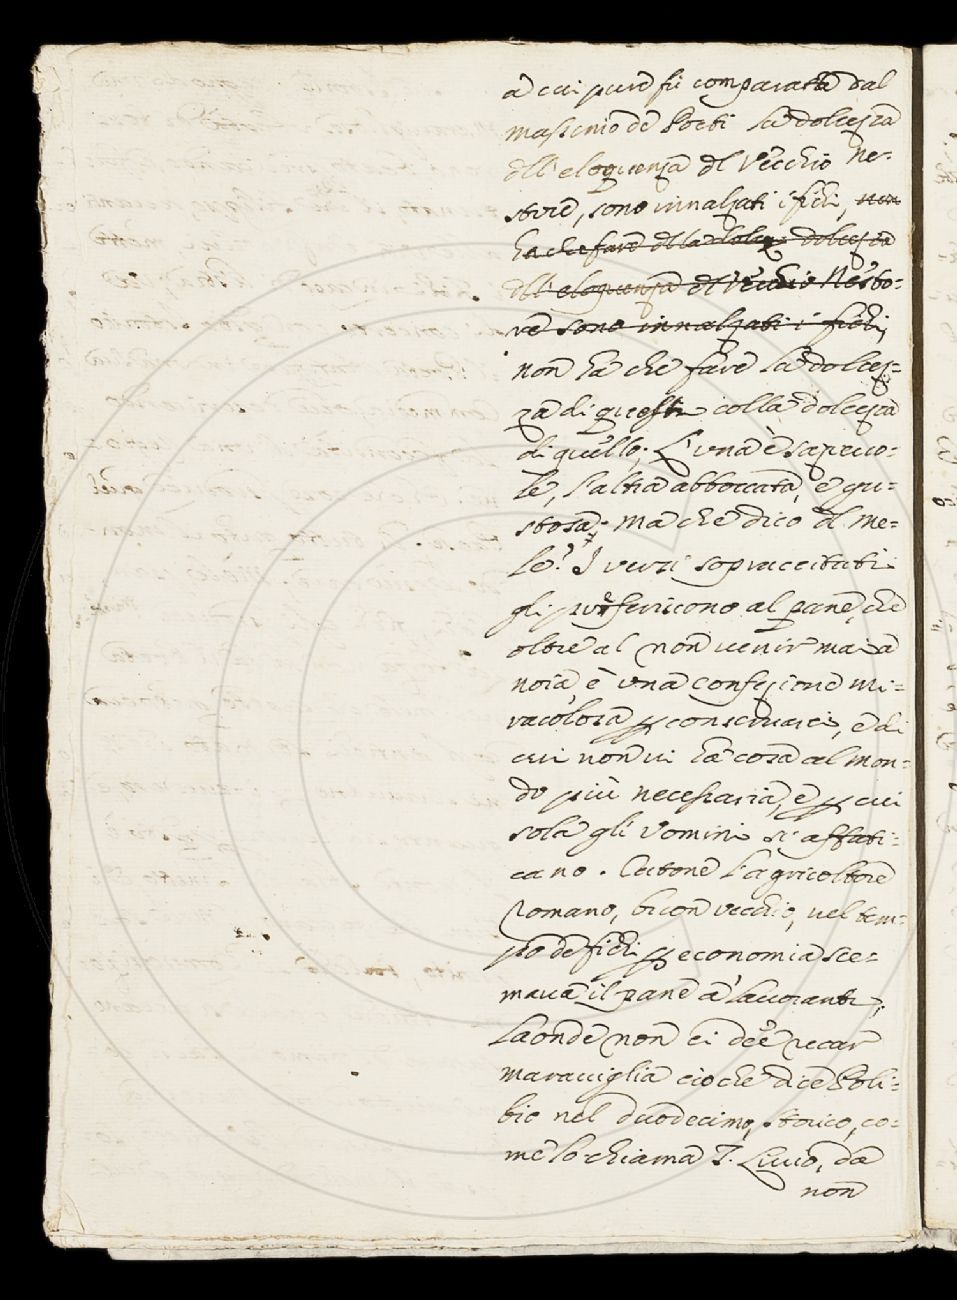 a cui pure fù comparata dal
massimo de Poeti la dolcezza
dll'eloquenza dl Vecchio Ne=
store, sono innalzati i fichi, non
ha che fare dlla dolcez= dolcezza
dll'eloquenza dl Vecchio Nesto=
re sono innalzati i fichi,
non ha che fare la dolcez=
za di questi colla dolcezza
di quello. L'una è sapevo=
le, l'altra abboccata, e gu=
stosa. ma che dico al me=
le? I versi sopraccitati
gli preferiscono al pane, che
oltre al non uenir mai a
noia, è una confezione mi=
racolosa p conseruarci, e di
cui non ui ha cosa al mon=
do più necessaria, e p cui
sola gli Uomini si affati=
cano. Catone l'agricoltore
Romano, bicon vecchio, nel tem=
po de fichi p economia sce=
maua il pane a' lauoranti,
laonde non ci dèe recar
marauiglia ciò che dice Poli=
bio nel duodecimo, storico, co=
me lo chiama T. Liuio, da
non